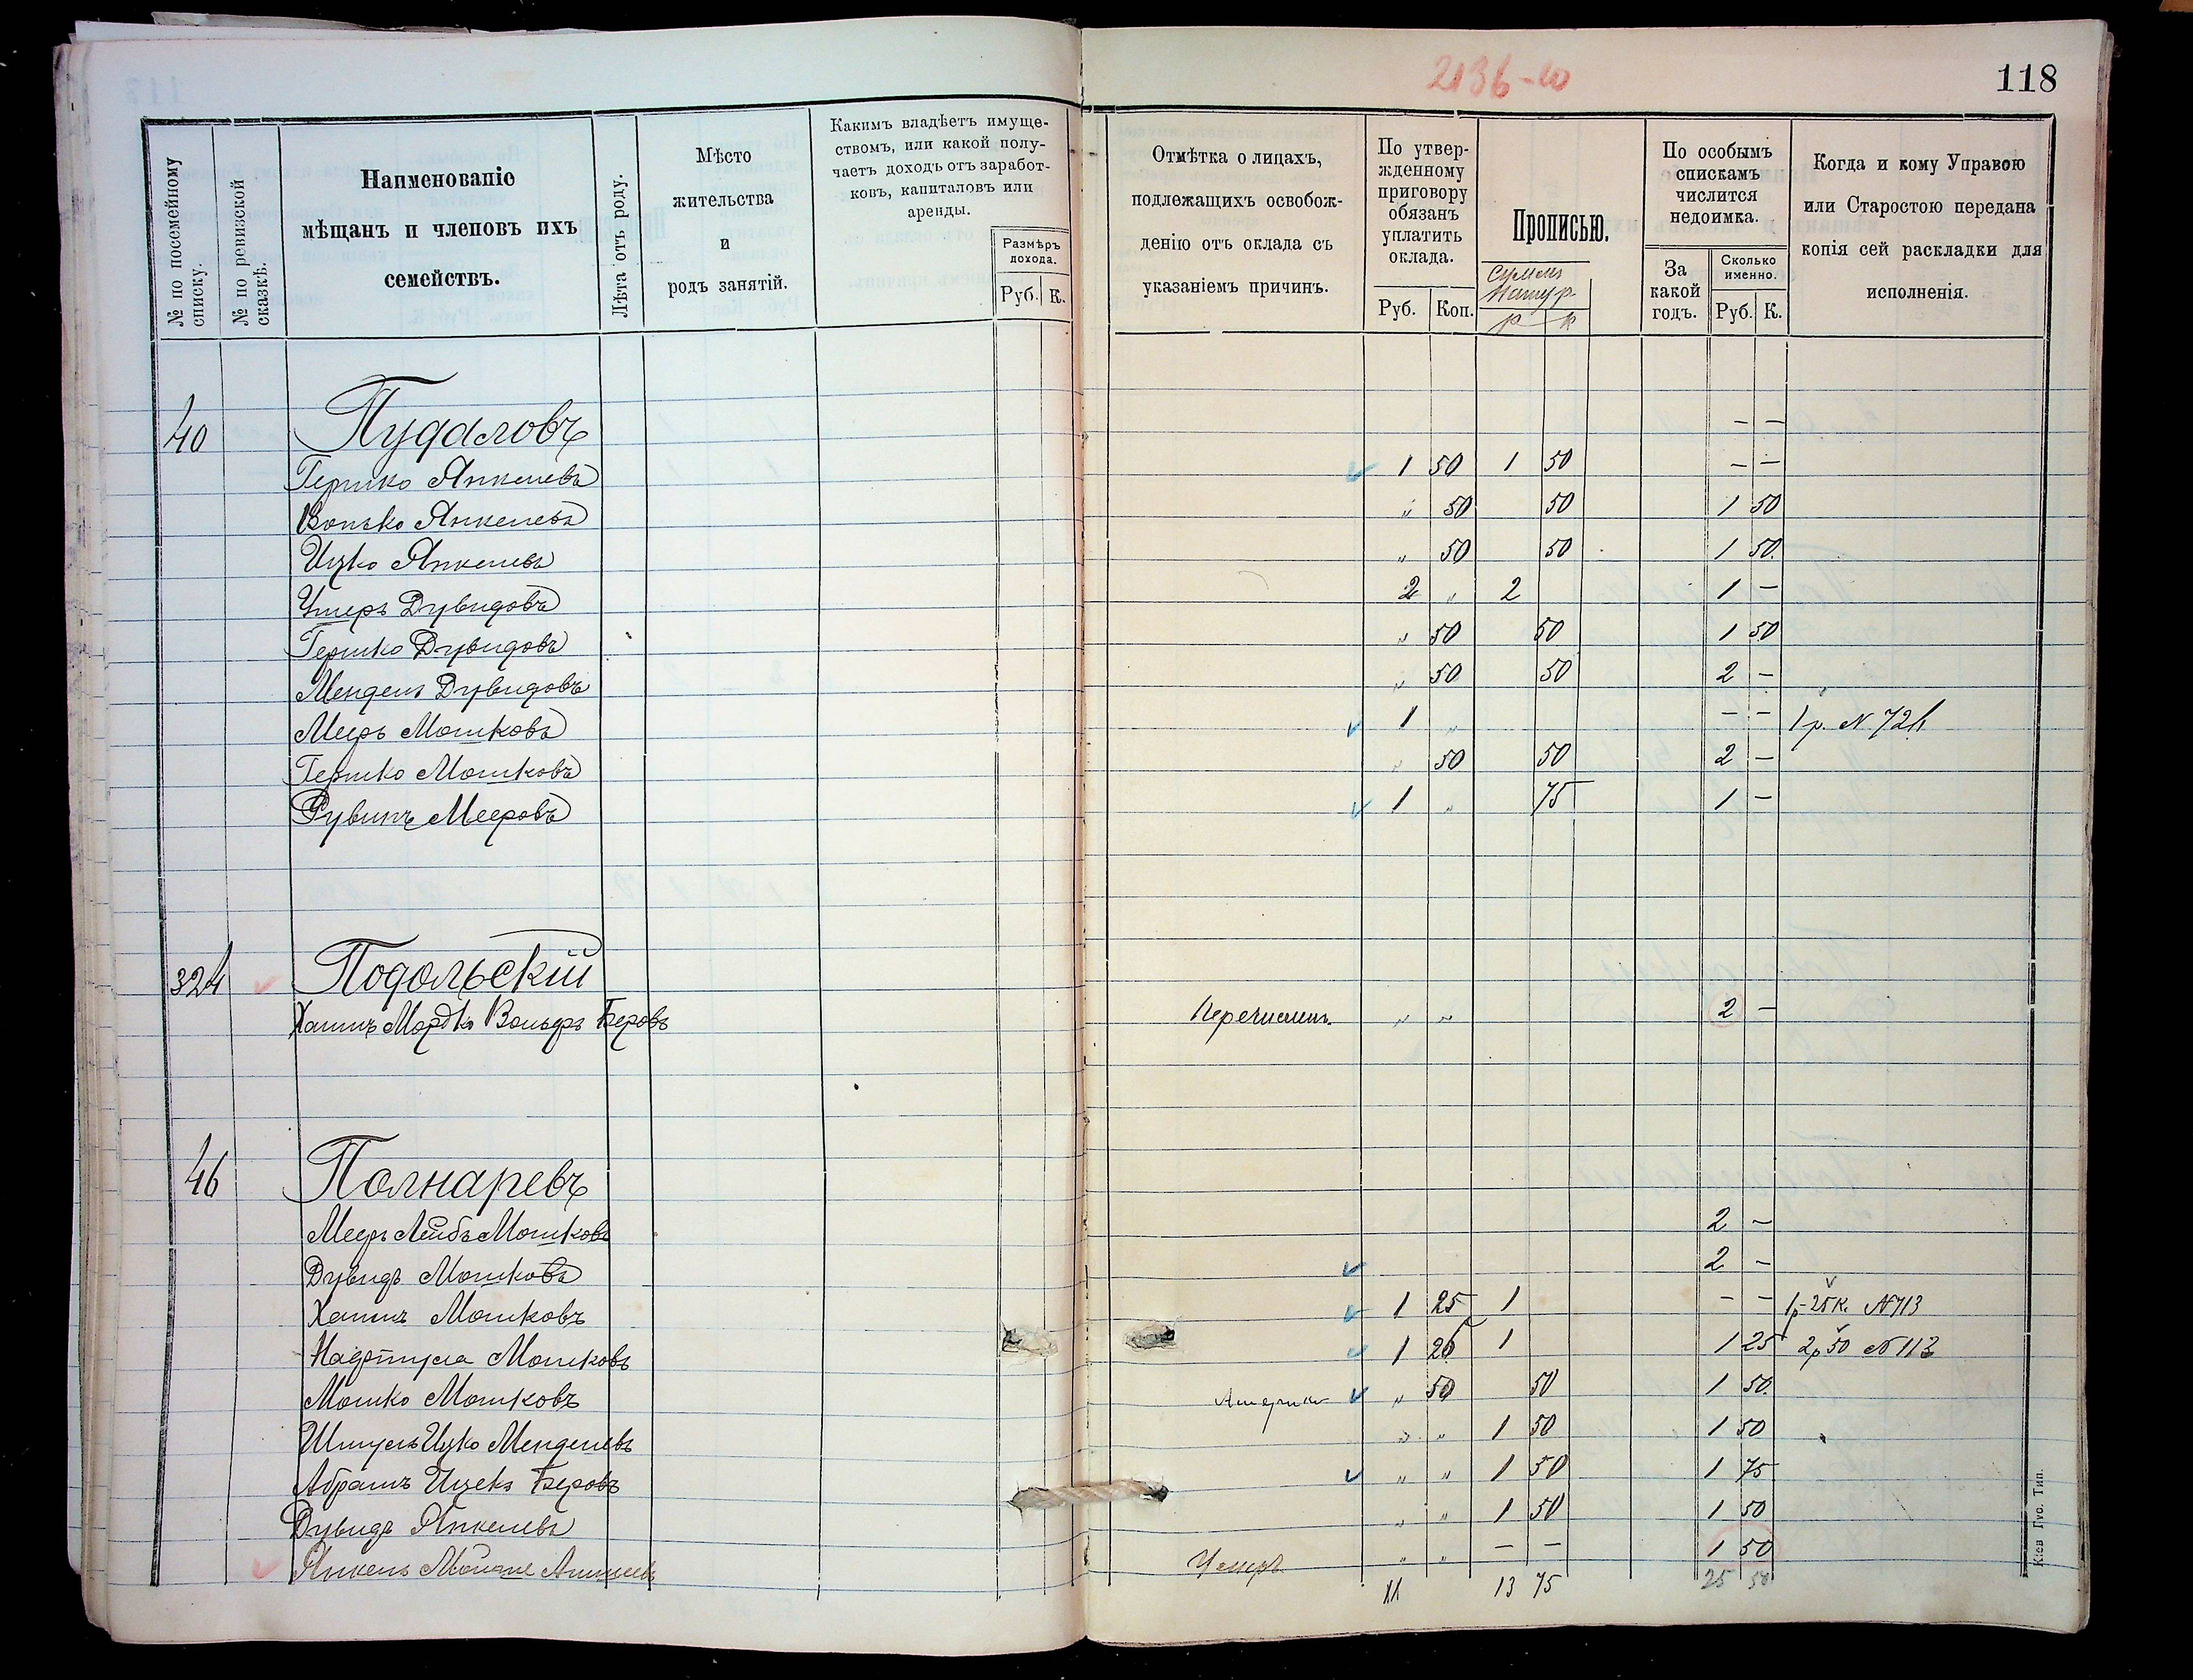 2136-10
118
№ по посемейному списку.
№ по ревизской сказкѣ.
Наименованіе
мѣщанъ и членовъ ихъ
семействъ.
Лѣта отъ роду.
Мѣсто
жительства
и
родъ занятій.
Какимъ владѣетъ имуще-
ствомъ, или какой полу-
чаетъ доходъ отъ заработ-
ковъ, капиталовъ или
аренды.
Размѣръ
дохода.
Руб. К.
Отмѣтка о лицахъ,
подлежащихъ освобож-
денію отъ оклада съ
указаніемъ причинъ.
По утвер-
жденному
приговору
обязанъ
уплатить
оклада.
Руб. Коп.
Прописью.
р к
По особымъ
спискамъ
числится
недоимка.
За
какой
годъ.
Сколько
именно.
Руб. К.
Когда и кому Управою
или Старостою передана
копія сей раскладки для
исполненія.
40 Пудаловъ — —
Гершко Янкелевъ 1 50 1 50 — —
Волько Янкелевъ " 50 50 1 50
Ицко Янкелевъ " 50 50 1 50
Ушеръ Дувидовъ 2 " 2 1 —
Гершко Дувидовъ " 50 50 1 50
Мендель Дувидовъ " 50 50 2 —
Мееръ Мошковъ 1 " — — 1 р. N 724
Гершко Мошковъ " 50 50 2 —
Рувинъ Мееровъ 1 " 75 1 —
324 Подольскій
Хаимъ Мордко Вольфъ Беровъ Перечислен. " " 2 —
46 Полнаревъ
Мееръ Лейбъ Мошковъ 2 —
Дувидъ Мошковъ 2 —
Хаимъ Мошковъ 1 25 1 — — 1 р-25 к. N 713
Нафтула Мошковъ 1 25 1 1 25 2 р 50 N 113
Мошко Мошковъ Америка " 50 50 1 50
Шмуль Ицко Менделевъ " " 1 50 1 50
Абрамъ Ицекъ Беровъ " " 1 50 1 75
Дувидъ Янкелевъ " " 1 50 1 50
Янкель Мойше Умеръ " " — — 1 50
11 13 75 25 50
Кіев Губ. Тип.